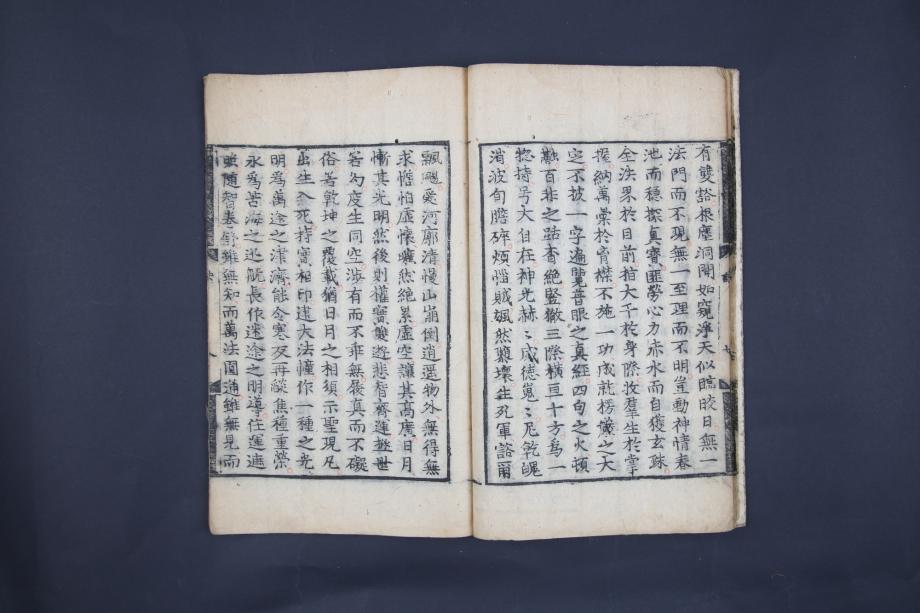 有雙豁根塵洞開如窺淨天似臨皎日無一
法門而不現無一至理而不明豈動神情春
池而穩探真寶匪勞心力赤水而自獲玄珠
全法界於目前指大千於身際收羣生於掌
握納萬彙於胷襟不施一功成就楞嚴之大
定不披一字遍覽普眼之真經四句之火頓
融百非之路杳絶竪徹三際橫亘十方爲一
惣持号大自在神光赫〻威德巍〻尼乾魄
消波旬膽碎煩惱賊颯然隳壞生死軍豁爾
飄颺愛河廓清慢山崩倒逍遙物外無得無
求憺怕虛懷曠然絶累虛空讓其高廣日月
慚其光明然後則權實雙遊悲智齊運拯世
若幻度生同空涉有而不乖無履真而不礙
俗若乾坤之覆載猶日月之相須示聖現凡
出生入死持實相印建大法幢作一種之光
明爲萬途之津濟能令寒灰再燄焦種重榮
永爲苦海之迅航長作迷途之明導任運遮
照隨智卷舒雖無知而萬法圓通雖無見而